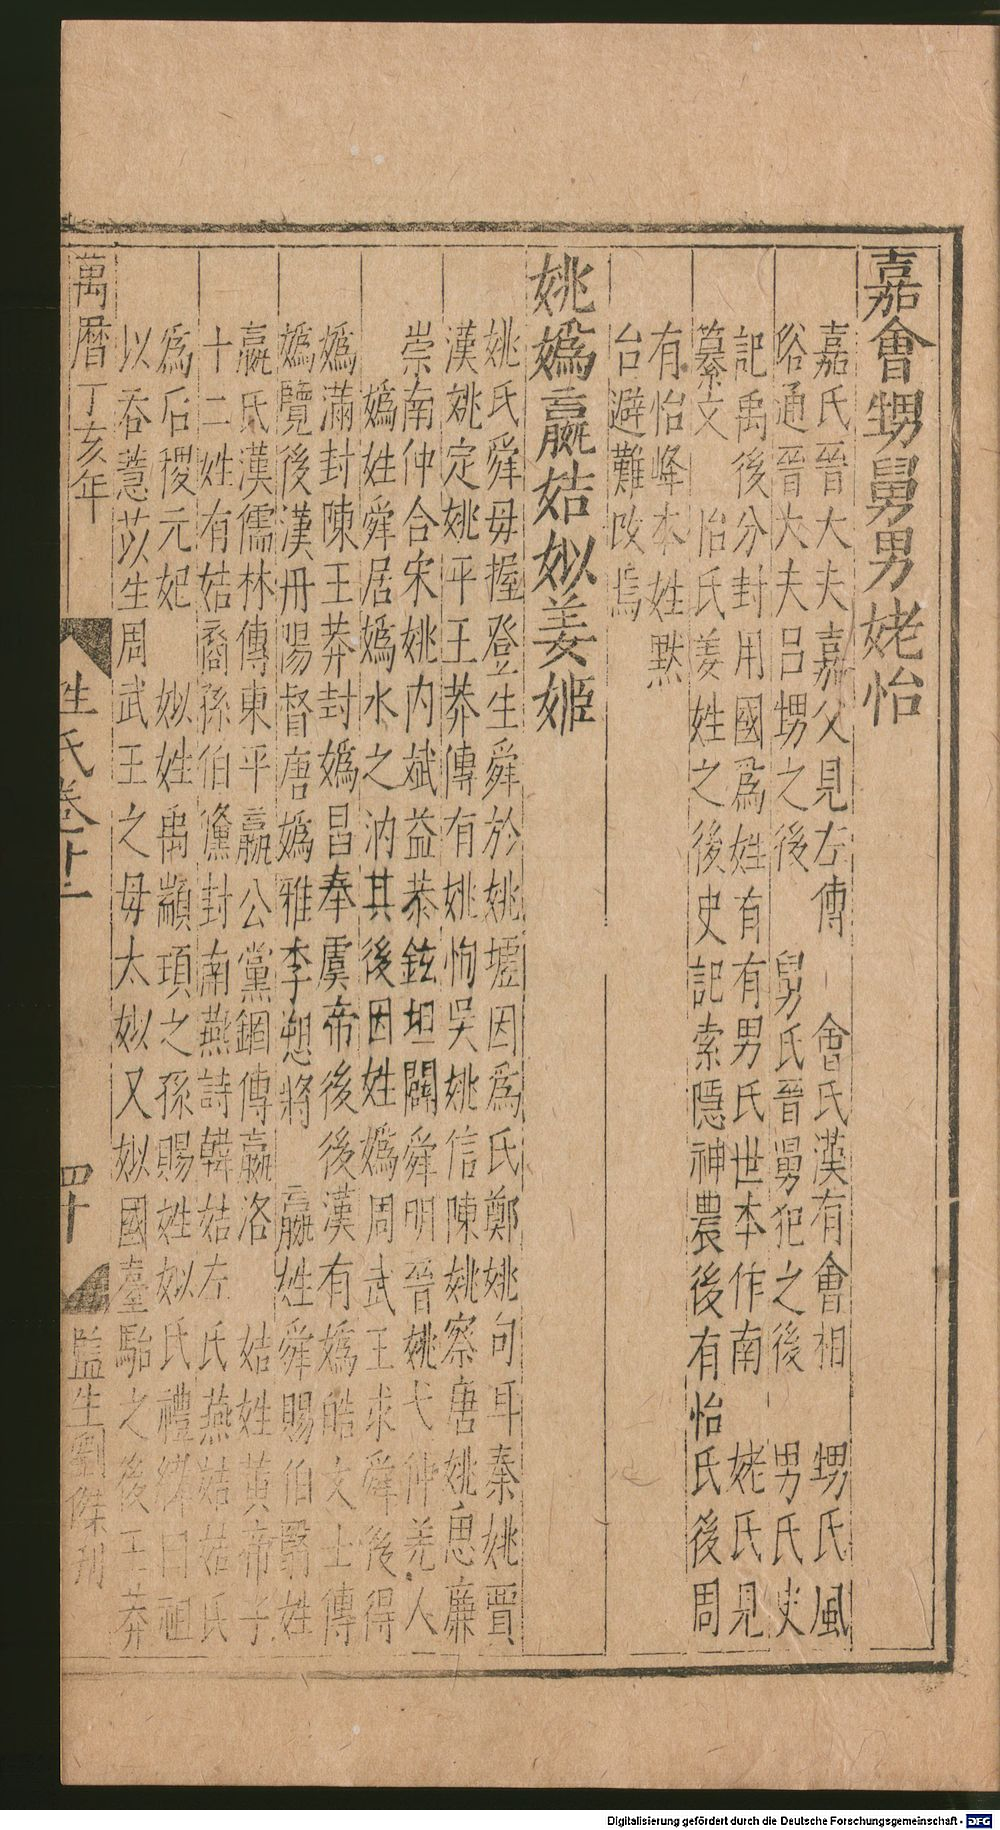 嘉會甥舅男姥怡
嘉氏晉大夫嘉父見左傳　會氏漢有會相　甥氏風
俗通晉大夫呂甥之後　舅氏晉舅犯之後　男氏史
記禹後分封用國爲姓有有男氏世本作南　姥氏見
纂文　怡氏姜姓之後史記索隱神農後有怡氏後周
有怡峰本姓默
台避難改焉
姚嬀嬴姞姒姜姬
姚氏舜毋握登生舜於姚墟因爲氏鄭姚句耳秦姚賈
漢姚定姚平王莽傳有姚恂吳姚信陳姚察唐姚思廉
崇南仲合宋姚内斌益恭鉉坦闢舜明晉姚弋仲羌人
嬀姓舜居嬀水之汭其後因姓嬀周武王求舜後得
嬀滿封陳王莽封嬀昌奉虞帝後後漢有嬀皓文士傳
嬀覽後漢丹陽督唐嬀雅李愬將　嬴姓舜賜伯翳姓
嬴氏漢儒林傳東平嬴公黨錮傳嬴洛　姞姓黄帝子
十二姓有姞裔孫伯儵封南燕詩韓姞左氏燕姞姞氏
爲后稷元妃　姒姓禹顓頊之孫賜姓姒氏禮緯曰祖
以吞薏苡生周武王之毋太姒又姒國臺駘之後王莽
萬曆丁亥年
姓氏卷十一
四十
監生劉傑刊
Digitalisierung gefördert durch die Deutsche Forschungsgemeinschaft - DFG